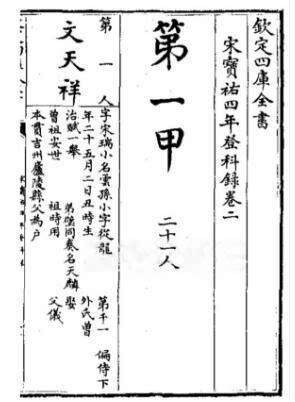 欽定四庫全書
宋寶祐四年登科錄卷二
第一甲
二十一人
第一人
文天祥
字宋瑞小名雲孫小字從龍
年二十五月二日丑時生
治賦一舉
弟璧同奏名天麟
娶
曾祖安世
祖時用
父儀
本貫吉州廬陵縣父為户
第千一
偏侍下
外氏曾